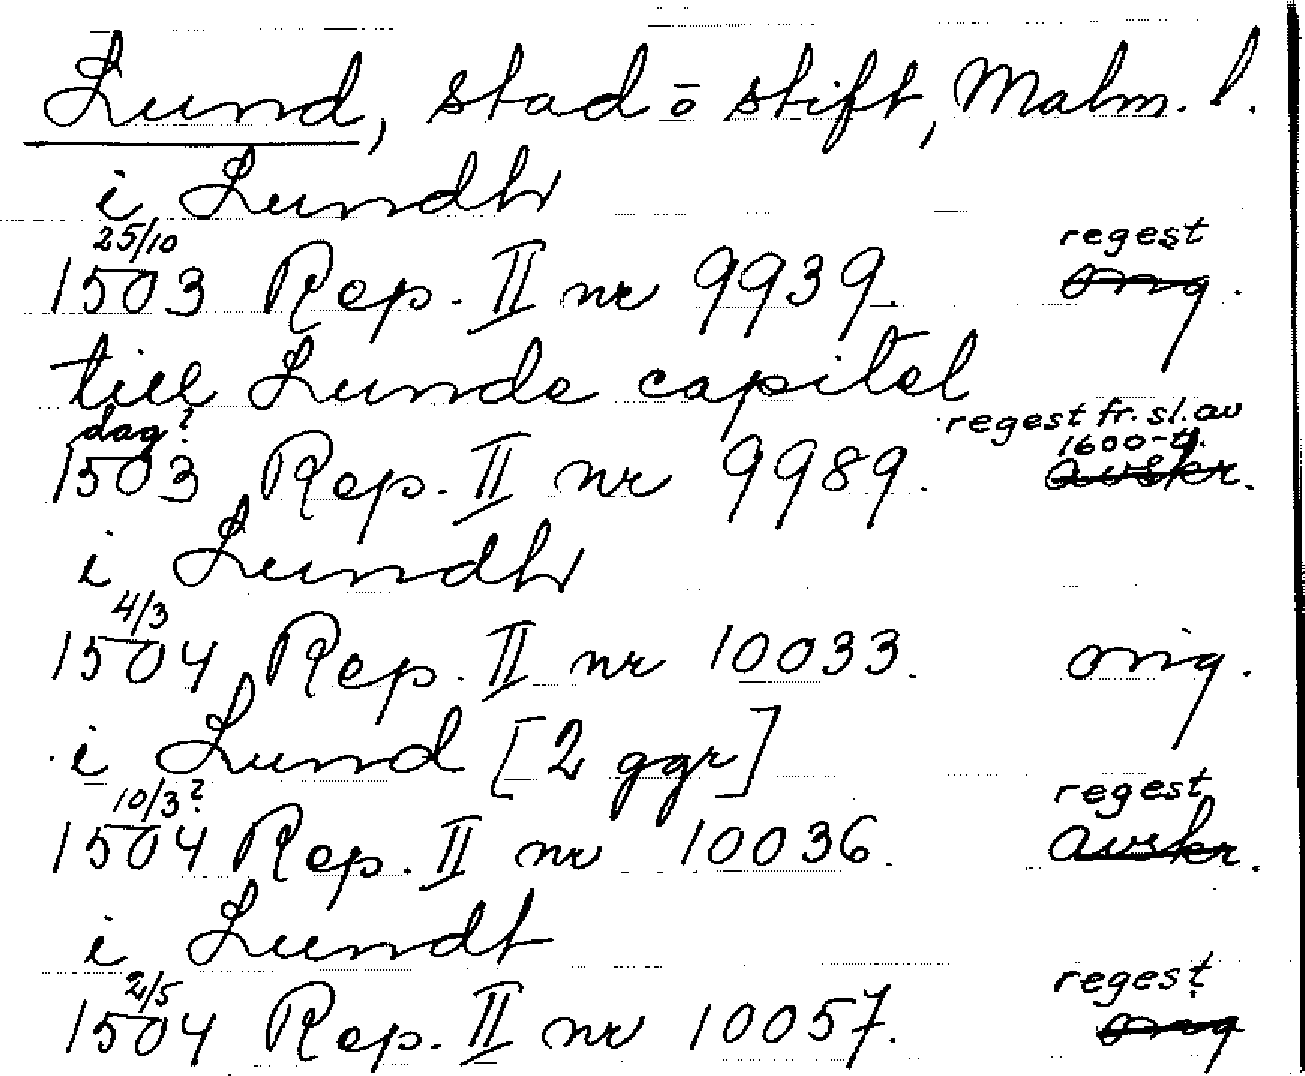 Lund, stad o stift, Malm. l.
i Lundh
25/10 regest
1503 Rep. II nr 9939. orig.
till Lunde capitel
dag? regest fr. sl. av 1600-t.
1503 Rep. II nr 9989. avskr.
i Lundh
4/3
1504 Rep. II nr 10033. orig.
i Lund [2 ggr]
10/3? regest
1504 Rep. II nr 10036. avskr.
i Lundt
2/5 regest
1504 Rep. II nr 10057. orig